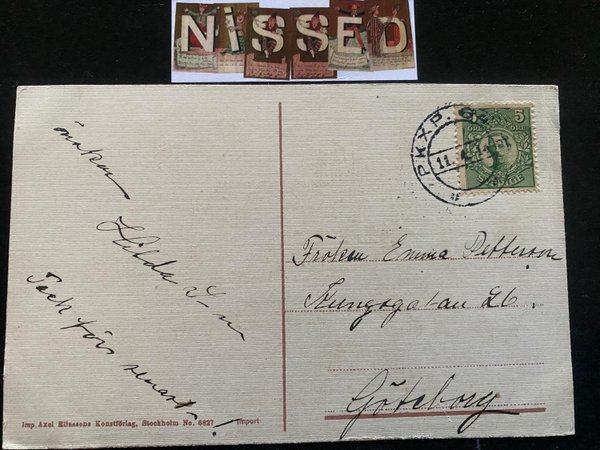 NISSED
önskar
Hilda L-n
Tack förs senast!
PKXP. G
11. 4. 14
5
ÖRE
Fröken Emma Petterson
Kungsgatan 26.
Göteborg
Imp. Axel Eliassons Konstförlag, Stockholm No. 6827
Import